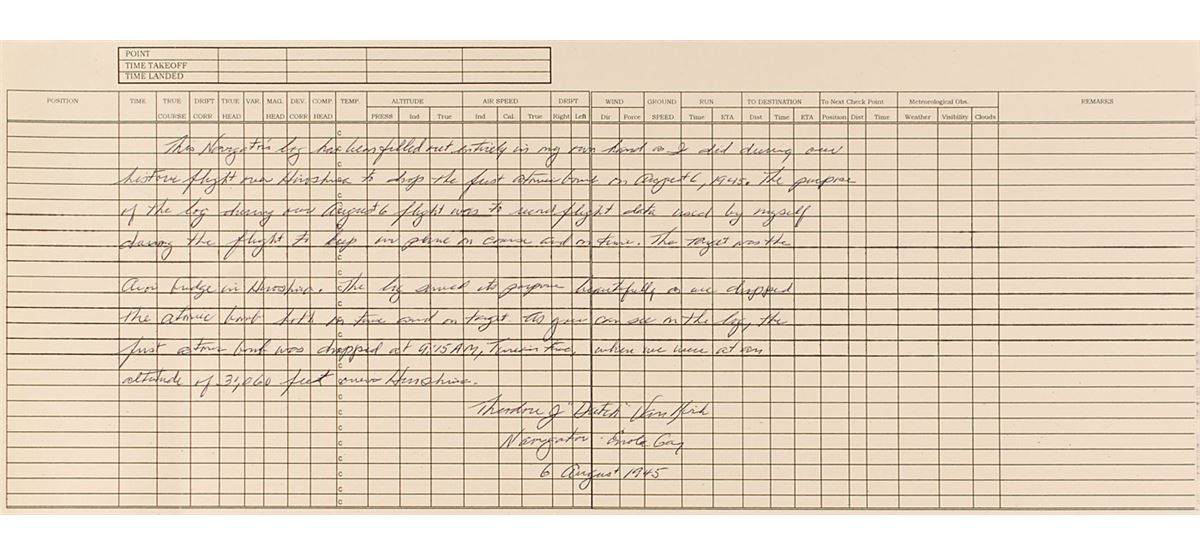 POINT
TIME TAKEOFF
TIME LANDED
POSITION TIME TRUE COURSE DRIFT CORR TRUE HEAD VAR. MAG. HEAD DEV. CORR COMP. HEAD TEMP. ALTITUDE AIR SPEED DRIFT WIND GROUND SPEED RUN TO DESTINATION To Next Check Point Meteorological Obs. REMARKS
PRESS Ind True Ind Cal True Right Left Dir Force Time ETA Dist Time ETA Position Dist Time Weather Visibility Clouds
This Navigator's log has been filled out entirely in my own hand as I did during our
historic flight over Hiroshima to drop the first atomic bomb on August 6, 1945. The purpose
of the log during our August 6 flight was to record flight data used by myself
during the flight to keep our plane on course and on time. The target was the
Aioi bridge in Hiroshima. The log served its purpose beautifully as we dropped
the atomic bomb both on time and on target. As you can see on the log, the
first atomic bomb was dropped at 9:15 AM, Tinian time, where we were at an
altitude of 31,060 feet over Hiroshima.
Theodore J "Dutch" Van Kirk
Navigator - Enola Gay
6 August 1945
C
C
C
C
C
C
C
C
C
C
C
C